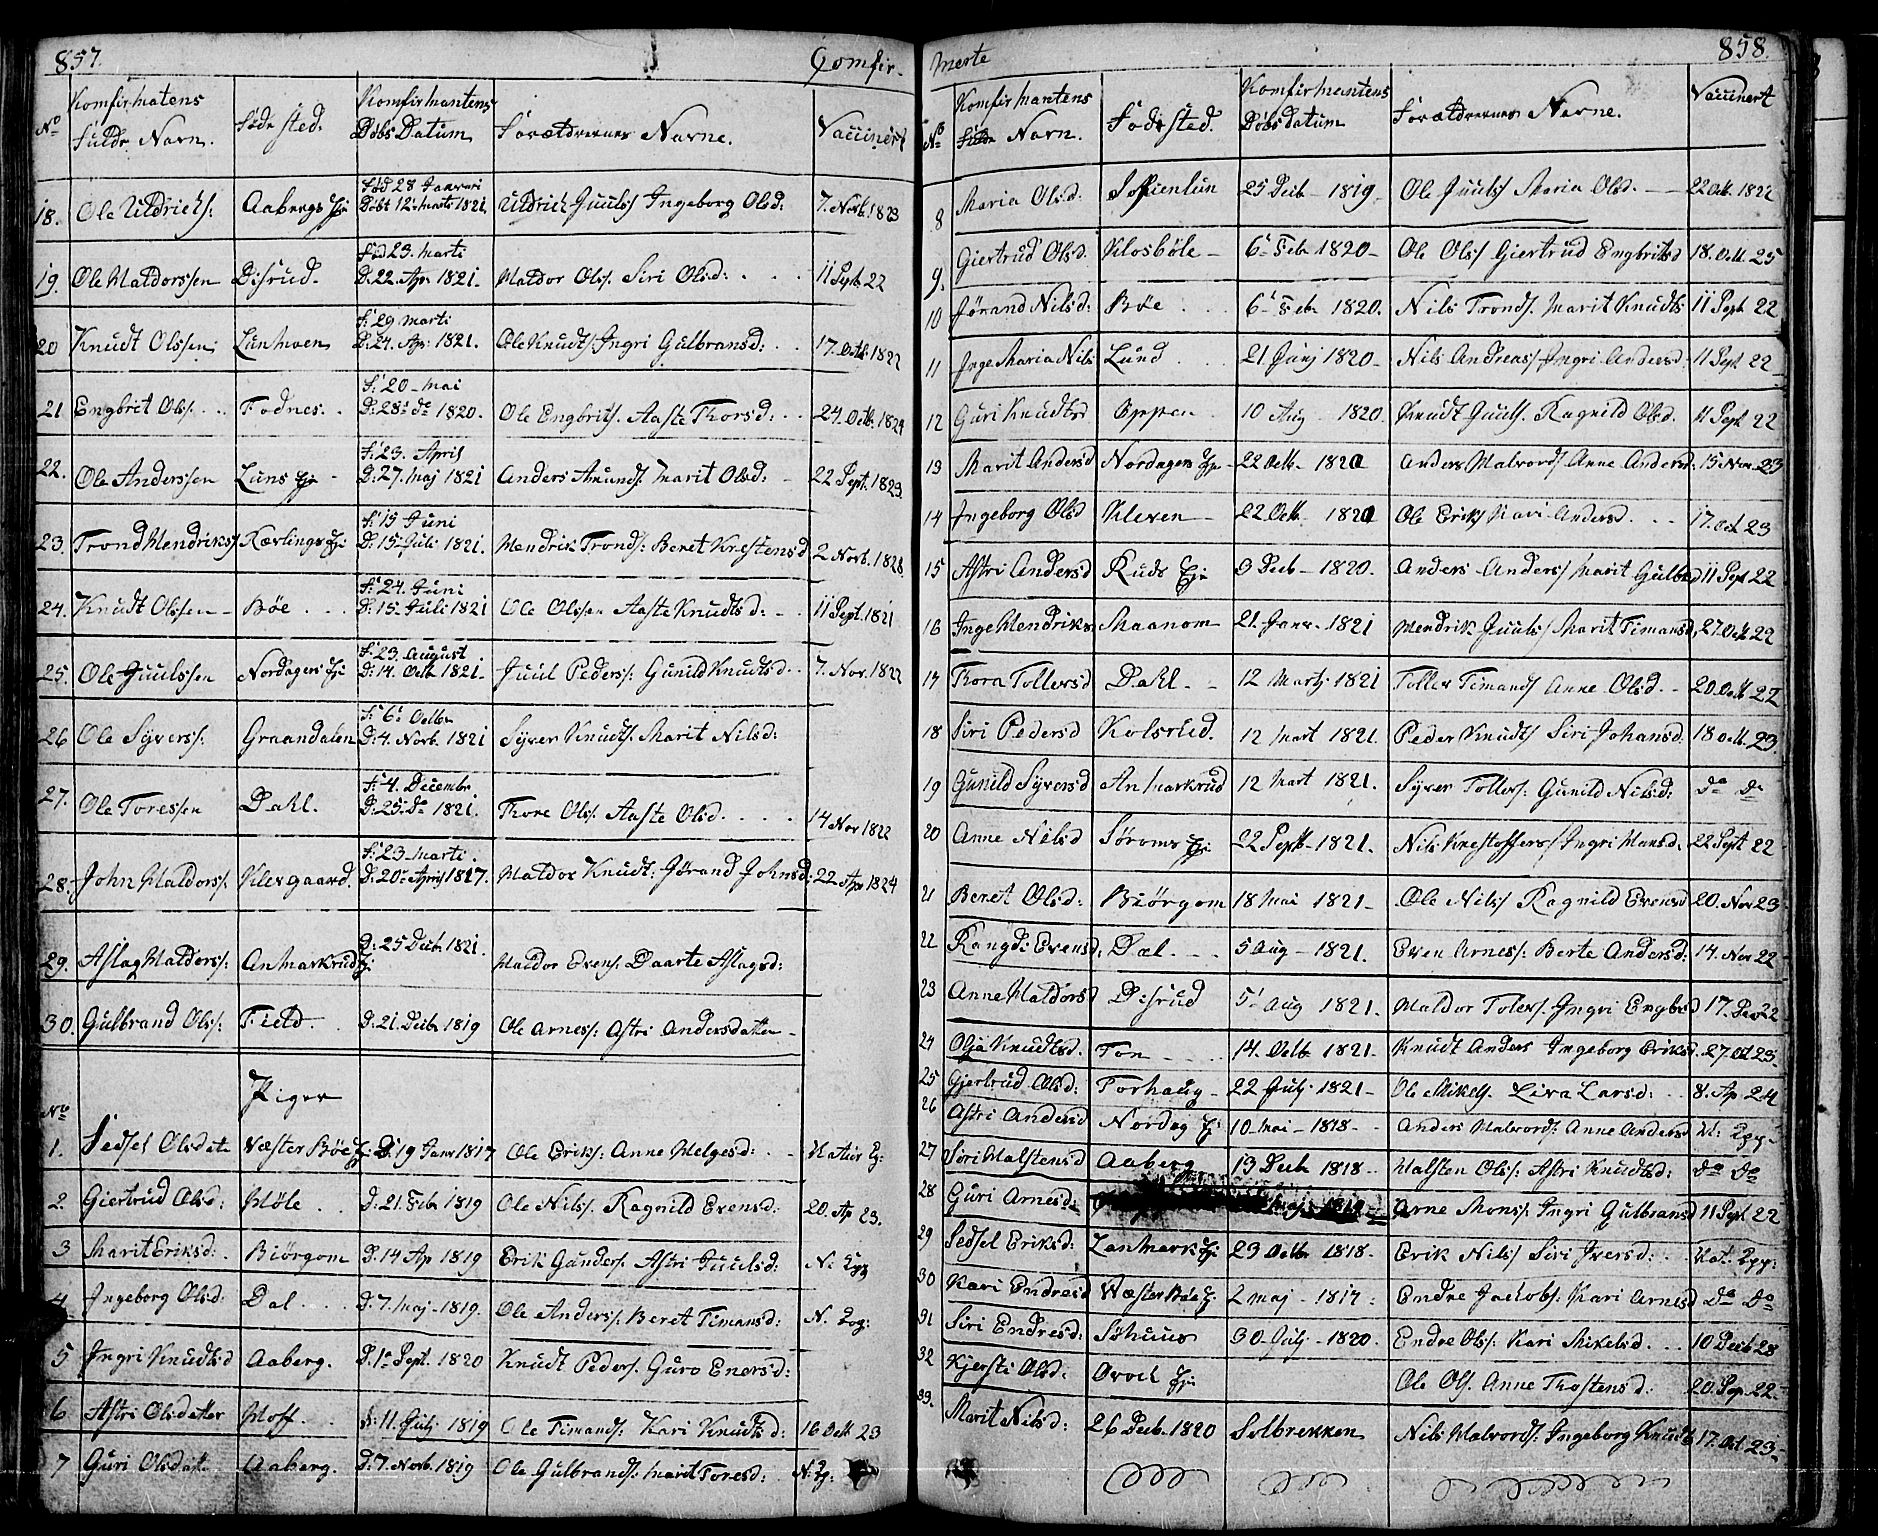 857. Comfir-
No Komfirmatens Fulde Navn. Føde sted. Komfirmantens Døbs Datum Forældrernes Navne. Vaccinert
18. Ole Uldrichs: Aabergs Eje Fød 28 Januari Døbt 12te Marts 1821 Uldrich Juuls/ Ingeborg Olsd: 7. Novb. 1823
19. Ole Haldorssen Disrud. Fød 23. marti D: 22. Apr. 1821. Haldor Ols/. Siri Olsd: 11 Sept. 22
20 Knudt Olssen Lunhven F: 29 marti D: 24. Apr. 1821. Ole Knudts/ Ingri Gulbransd: 17. Octb. 1822
21 Engbrit Ols: Fodnes. F: 20 mai D: 28de do 1820. Ole Engbrits/. Aaste Thorsd: 24. Octb. 1824
22. Ole Anderssen Luns Eje F: 23. April D: 27. Maj 1821 Anders Amunds/. Marit Olsd: 22 Sept. 1823.
23. Trond Hendriks/ Kærlings Eje F: 15 Juni D: 15 Juli 1821. Hendrik Tronds/: Beret Krestensd 2 Novb. 1823.
24. Knudt Olssen Bøe F: 24. Juni D: 15. Juli 1821 Ole Olssen Aaste Knudtsd: 11 Sept. 1821
25. Ole Juulssen Nordagers Eje F: 23. August D: 14. Octb 1821. Juul Peders/: Gunild Knudtsd. 7. Nov. 1822
26 Ole Syvers/: Graandalen F: 6te Octbr D: 4. Novb. 1821 Syver Knudts/. Marit Nilsd:
27. Ole Toressen Dahl. F: 4. Decembr D: 25. Do 1821. Thore Ols/. Aaste Olsd. 14 Nov 1822
28. John Haldors/. Klevgaard. F: 23. marti. D: 20de April 1817. Haldor Knudt: Jørand Johnsd: 22 Apr 1824
29. Aslag Haldors/: Anmarkrud Eje D: 25 Decb. 1821. Haldor Evens/. Daarte Aslagsd:
30. Gulbrand Ols/: Field D: 21 Decbr 1819 Ole Arnes/: Astri Andersdatter
Piger
No
1. Sedsel Olsdatr Wæster Bøe Eje D: 19 Janr 1817 Ole Eriks/: Anne Helgesd: Natur Eg:
2. Giertrud Olsd: Møle D: 21. Febr 1819 Ole Nils/. Ragnild Evensd: 20. Ap 23.
3 Marit Eriksd: Biørgom D: 14 Ap 1819 Erik Gunders/. Astri Juulsd: N:
4 Ingeborg Olsd: Dal D: 7. Maj 1819. Ole Anders/: Beret Timansd: N.
5 Ingri Knudtsd Aaberg. D: 1te Sept. 1820 Knudt Peders/. Guro Enersd:
6 Astri Olsdatter Hoff D: 11. Julj 1819 Ole Timands/: Kari Knudtsd: 16 Octb 23
7 Guri Olsdatr. Aaberg. D: 7. Novb. 1819 Ole Gulbrands/: Marit Toresd: N: Eg:
merte 858.
No Komfirmantens Navn. Føde sted. Komfirmantens Døbs datum Forældrernes Navne. Vaccinert
8 Maria Olsd: Sofienlun 25 Decb 1819. Ole Juuls/ Maria Olsd. 22 Octb. 1822
9. Giertrud Olsd. Klosbøle 6te Febr 1820 Ole Ols/ Giertrud Engbritsd 18. Octb. 25
10 Jørand Nilsd: Bøe 6te Febr 1820. Nils Tronds/. Marit Knudts: 11 Sept 22
11 Inge Maria Nils Lund 21 Junj 1820 Nils Andreas/ Ingri Andersd: 11 Sept 22
12 Guri Knudtsd Oppen 10 Aug 1820. Knudt Juuls/. Ragnild Olsd. 11 Sept 22
13 Marit Andersd Nordagers Eje 22 Octb. 1820 Anders Halvords/ Anne Andersd: 15 Nov. 23
14 Ingeborg Olsd Kleven 22 Octb. 1820 Ole Eriks/ Kari Andersd. 17. Oct 23
15 Astri Andersd Ruds Eje 3 Decb 1820. Anders Anders/ Marit Gulbrd 11 Sept 22
16 Inge Hendriks Maanom 21. Janr. 1821 Hendrik Juuls/ Marit Timansd, 27. Octb 22
17 Thora Tollevsd Dahl. 12 Marts 1821 Tollev Timands/ Anne Olsd. 20. Octb 22
18 Siri Pedersd Kolsrud. 12 Mart 1821. Peder Knudts/ Siri Johansd: 18 Octb. 23.
19 Gunild Syversd Anmarkrud 12 Mart 1821. Syver Tollevs/. Gunild Nilsd: do do
20 Anne Nilsd Sørums Eje 22 Septb 1821. Nils Krestoffers/ Ingri Hansd. 22 Sept 22
21 Beret Olsd: Biørgom 18 Mai 1821 Ole Nils/ Ragnild Evensd 20. Nov 23
22 Rangdi Evensd: Dal 5 Aug 1821. Even Arnes/: Berte Andersd: 14. Nov 22
23 Anne Haldorsd Disrud 5te Aug 1821. Haldor Tolevs/. Ingri Engbrd 17. Decb 22
24 Olja Knudtsd. Ton 14. Octb 1821. Knudt Anders Ingeborg Eriksd. 27. Oct 23.
25 Gjertrud Olsd: Torhaug 22 Julj 1821 Ole Mikels/. Liva Larsd: 8. Ap 24
26 Astri Andersd Nordag Eje 10 Mai 1818 Anders Halvords/: Anne Andersd N:
27 Siri Halstensd Aaberg 13 Decb 1818 Halsten Ols/: Astri Knudtsd: do do
28 Guri Arnesd: Arne Mons/: Ingri Gulbransd 11 Sept 22
29 Sedsel Eriksd: Lanmark Eje 23 Octb 1818 Erik Nils/ Siri Iversd: Nat.
30 Kari Endresd Wæster Bøe Eje 2 Maj 1817: Endre Jackobs/. Kari Arnesd Do Do
31 Siri Endresd: Søhuus 30 Julj 1820. Endre Ols/: Kari Mikelsd. 10 Decb 28
32 Kjersti Olsd. Eje Ole Ols/. Anne Thostensd: 20. Sep. 22
33. Marit Nilsd: 26 Decb. 1820 Solbrekken Nils Halvords/: Ingeborg Knudts 17. Oct 23